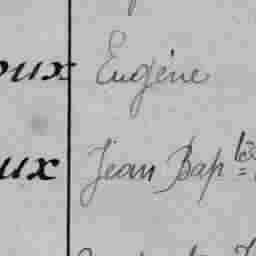 oux Eugène
ux Jean Bap